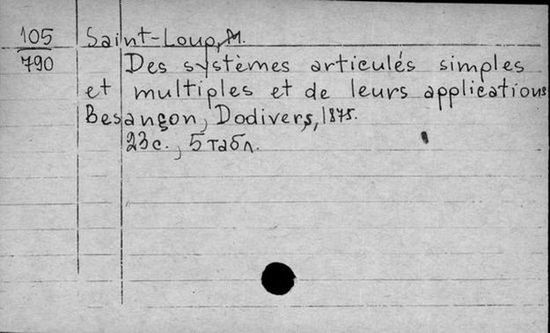 105 Saint-Loup, M.
790 Des systèmes articulés simples
et multiples et de leurs applications
Besançon, Dodivers, 1875.
23 с., 5 табл.